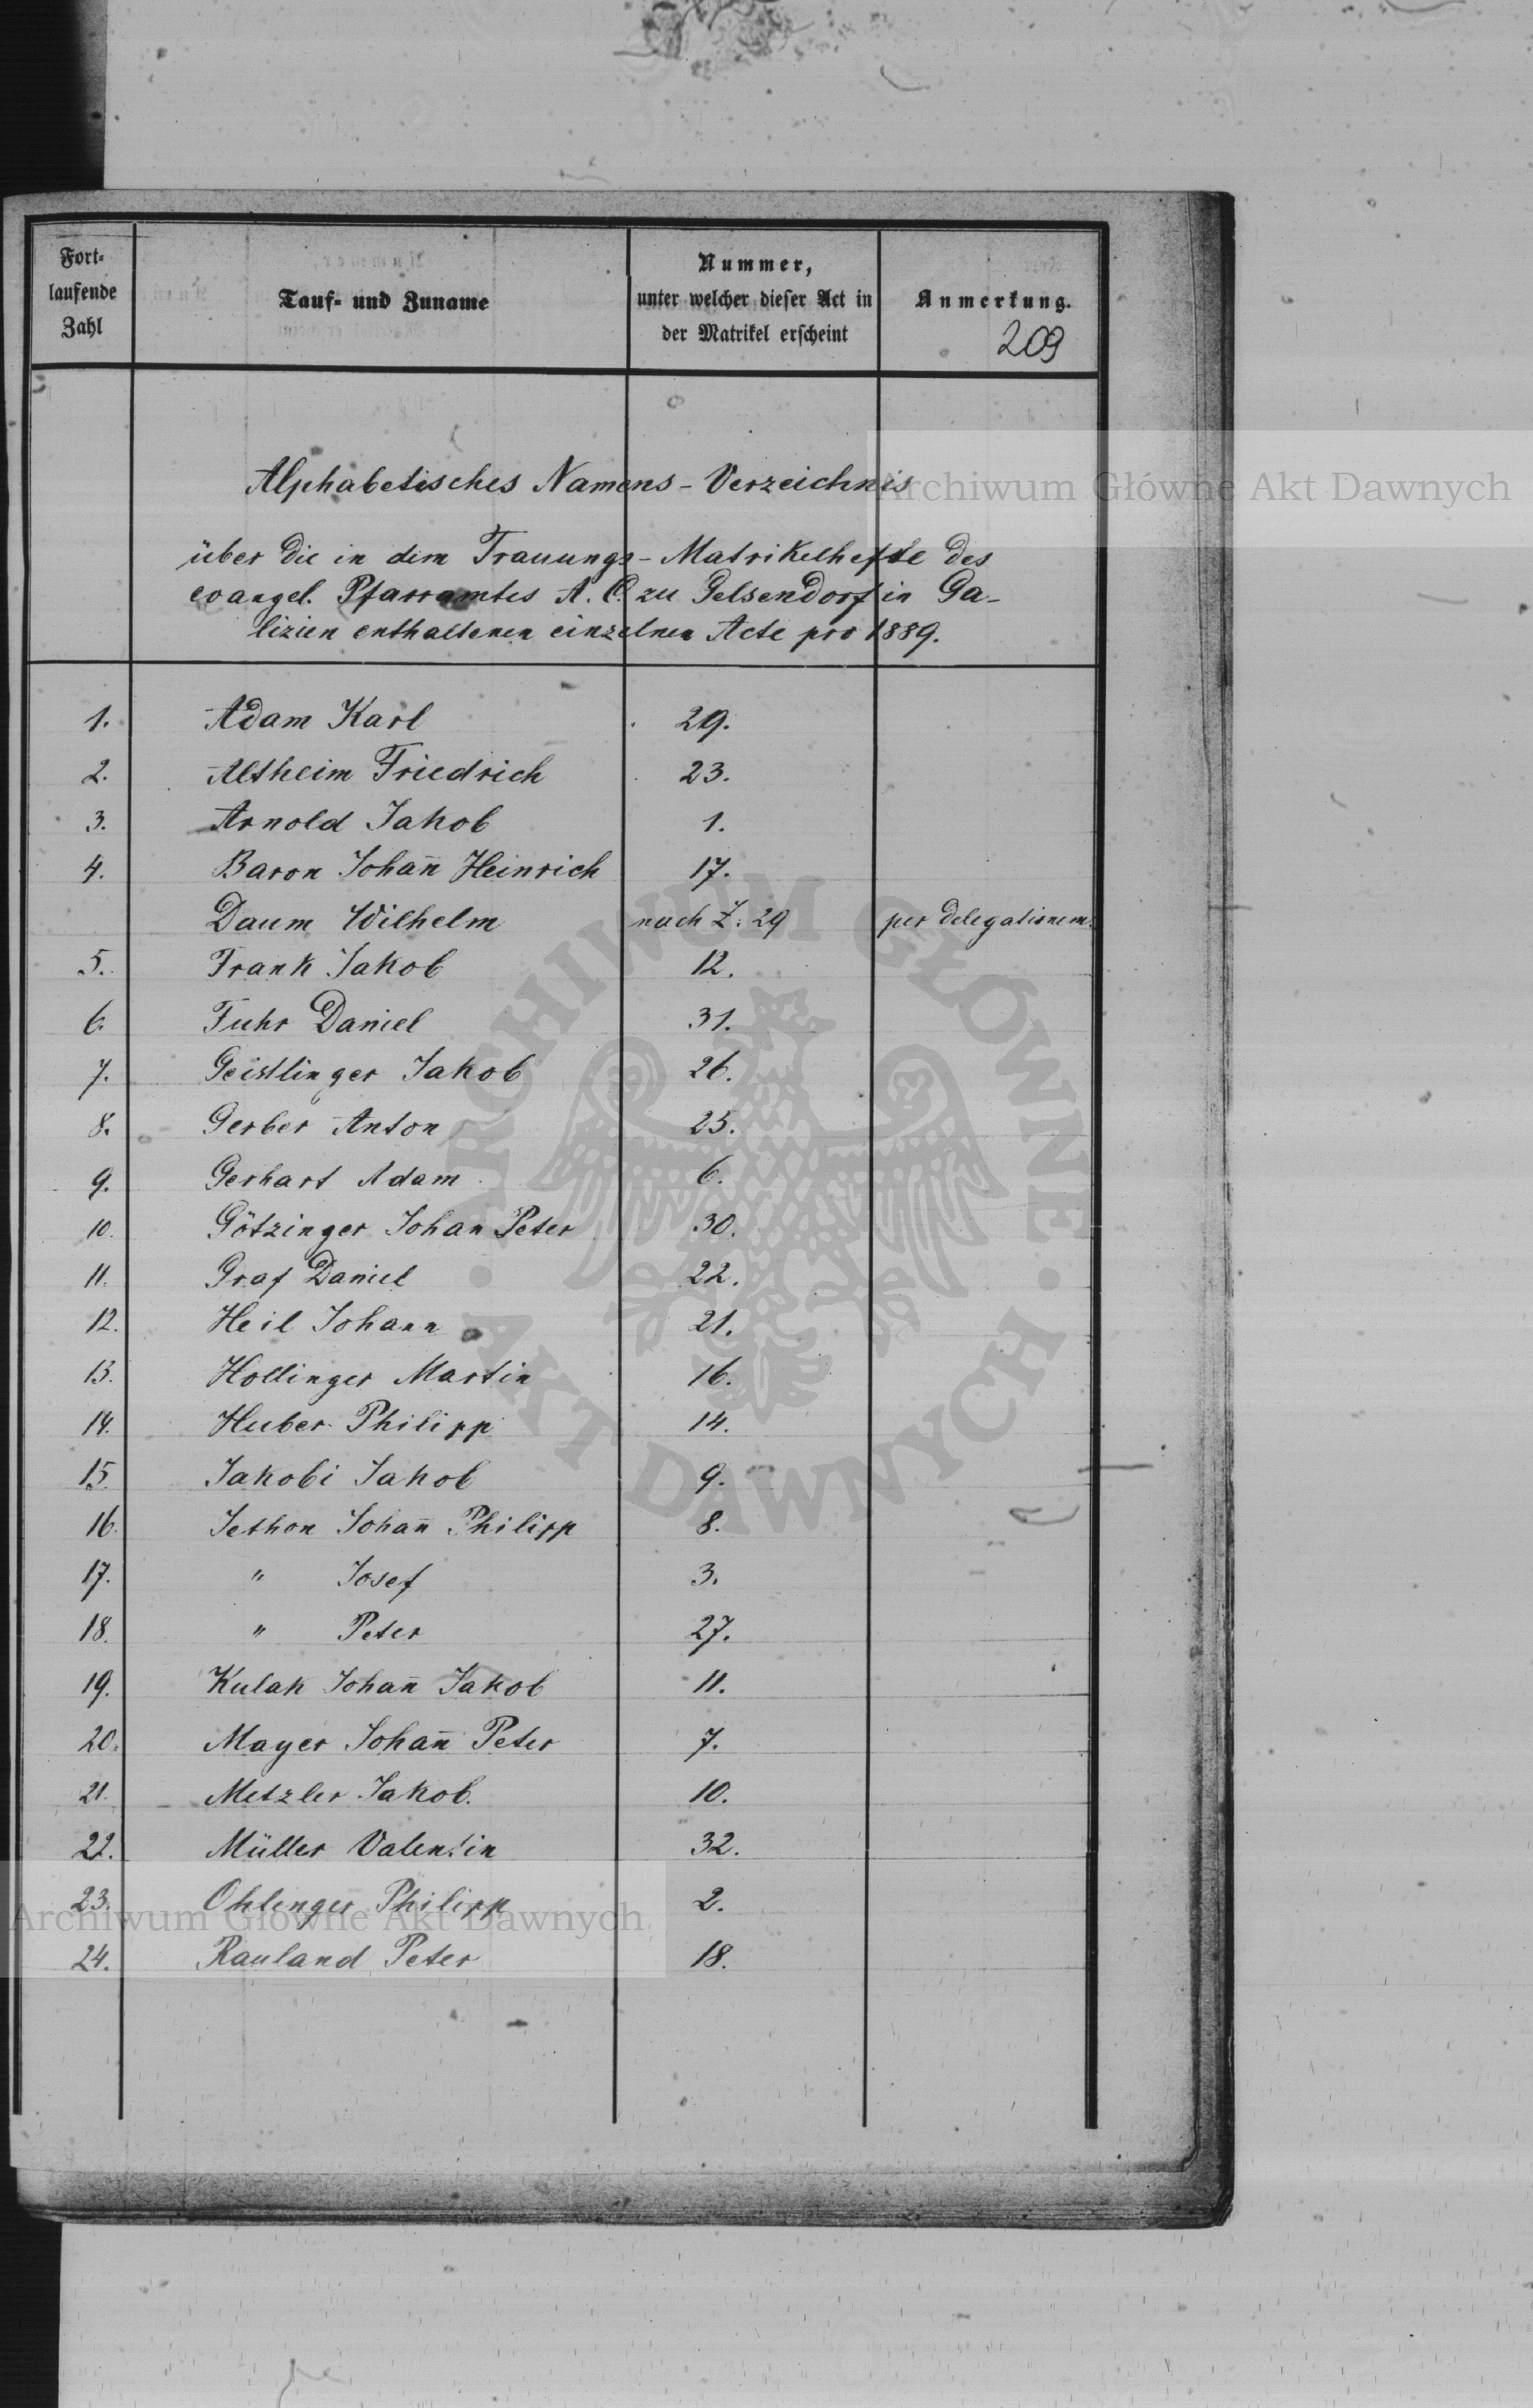 Fort-
laufende
Zahl
Tauf- und Zuname
Nummer,
unter welcher dieser Act in
der Matrikel erscheint
Anmerkung.
209
Alphabetisches Namens-Verzeichnis
über die in dem Trauungs-Matrikelhefte des
evangel. Pfarramtes A. C. zu Gelsendorf in Ga-
lizien enthaltenen einzelnen Acte pro 1889.
1. Adam Karl 29.
2. Altheim Friedrich 23.
3. Arnold Jakob 1.
4. Baron Johan̄ Heinrich 17.
Daum Wilhelm nach Z. 29 per delegationem.
5. Frank Jakob 12.
6. Fuhr Daniel 31.
7. Geistlinger Jakob 26.
8. Gerber Anton 25.
9. Gerhart Adam 6.
10. Götzinger Johan Peter 30.
11. Graf Daniel 22.
12. Heil Johann 21.
13. Hollinger Martin 16.
14. Huber Philipp 14.
15. Jakobi Jakob 9.
16. Jethon Johan̄ Philipp 8.
17. " Josef 3.
18. " Peter 27.
19. Kulak Johan̄ Jakob 11.
20. Mayer Johan̄ Peter 7.
21. Metzler Jakob. 10.
22. Müller Valentin 32.
23. Ohlenger Philipp 2.
24. Rauland Peter 18.
Archiwum Główne Akt Dawnych
ARCHIWUM GŁÓWNE • AKT DAWNYCH •
Archiwum Główne Akt Dawnych